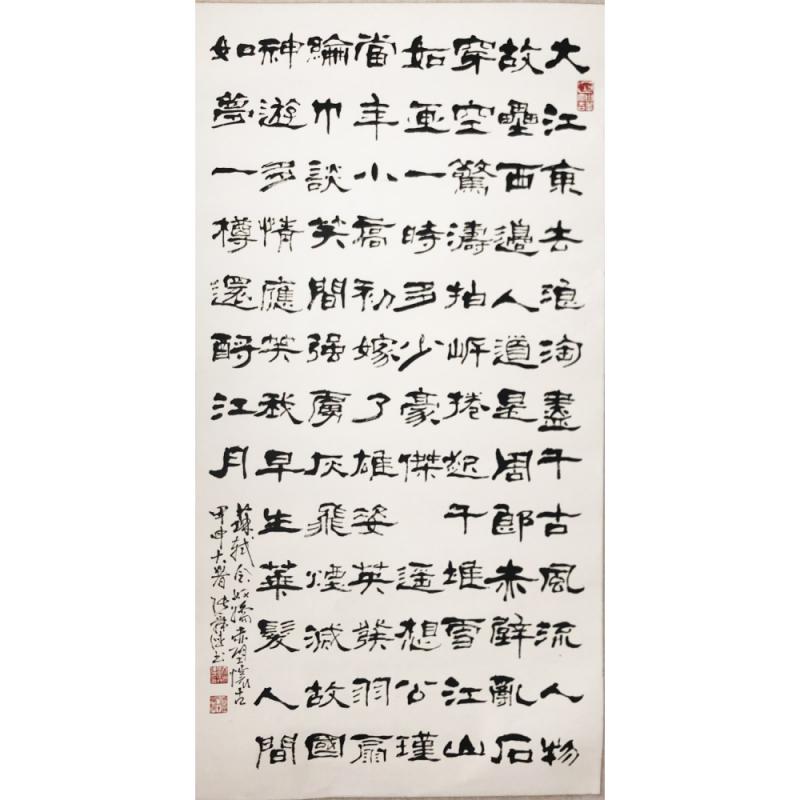 大江東去浪淘盡千古風流人物
故壘西邊人道是周郎赤壁亂石
穿空驚濤拍岸捲起千堆雪江山
如畫一時多少豪傑 遥想公瑾
當年小喬初嫁了雄姿英發羽扇
綸巾談笑間强虜灰飛煙滅故國
神遊多情應笑我早生華髮人間
如夢一樽還酹江月
蘇軾念奴嬌赤壁懷古
甲申大暑张書